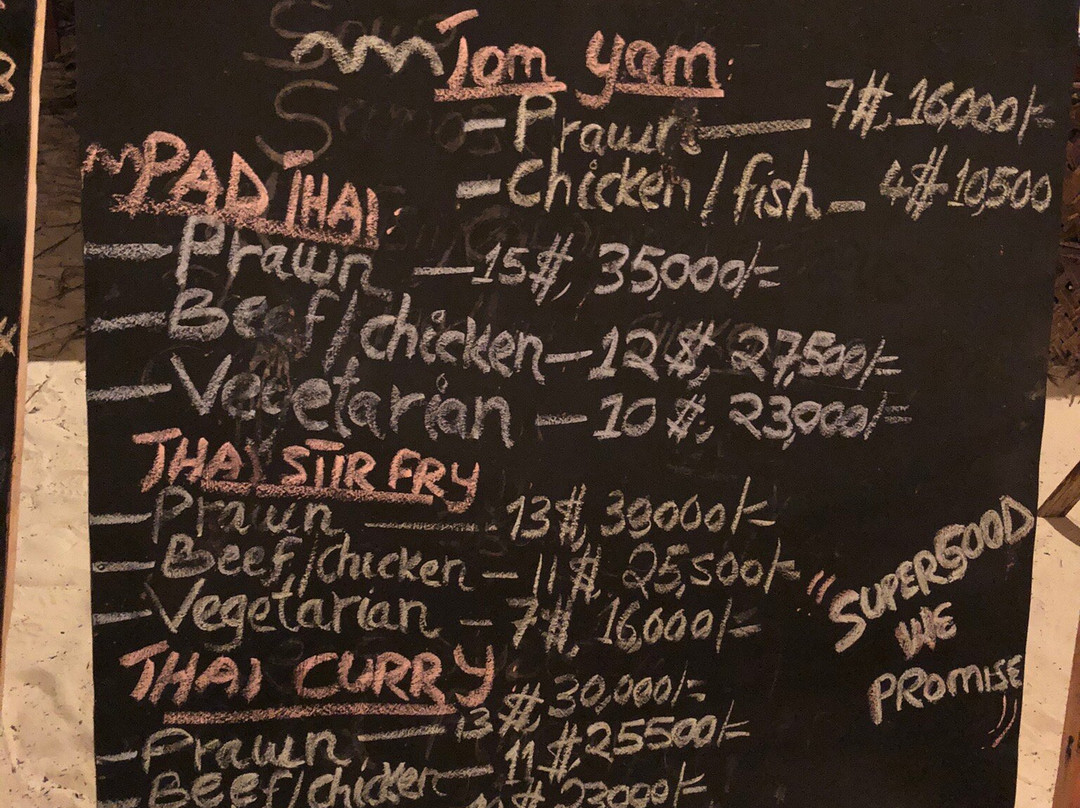 Tom yam:
– Prawn — 7$, 16,000/-
– Chicken / fish – 4$ 10,500
PAD THAI:
– Prawn — 15$, 35,000/=
– Beef/chicken – 12$, 27,500/=
– Vegetarian – 10$, 23,000/=
THAI STIR FRY
– Prawn — 13$, 30000/-
– Beef/chicken – 11$, 25,500/-
– Vegetarian – 7$, 16,000/-
"SUPERGOOD
WE
PROMISE"
THAI CURRY
– Prawn — 13$, 30,000/-
– Beef/chicken — 11$, 25500/-
23000/-